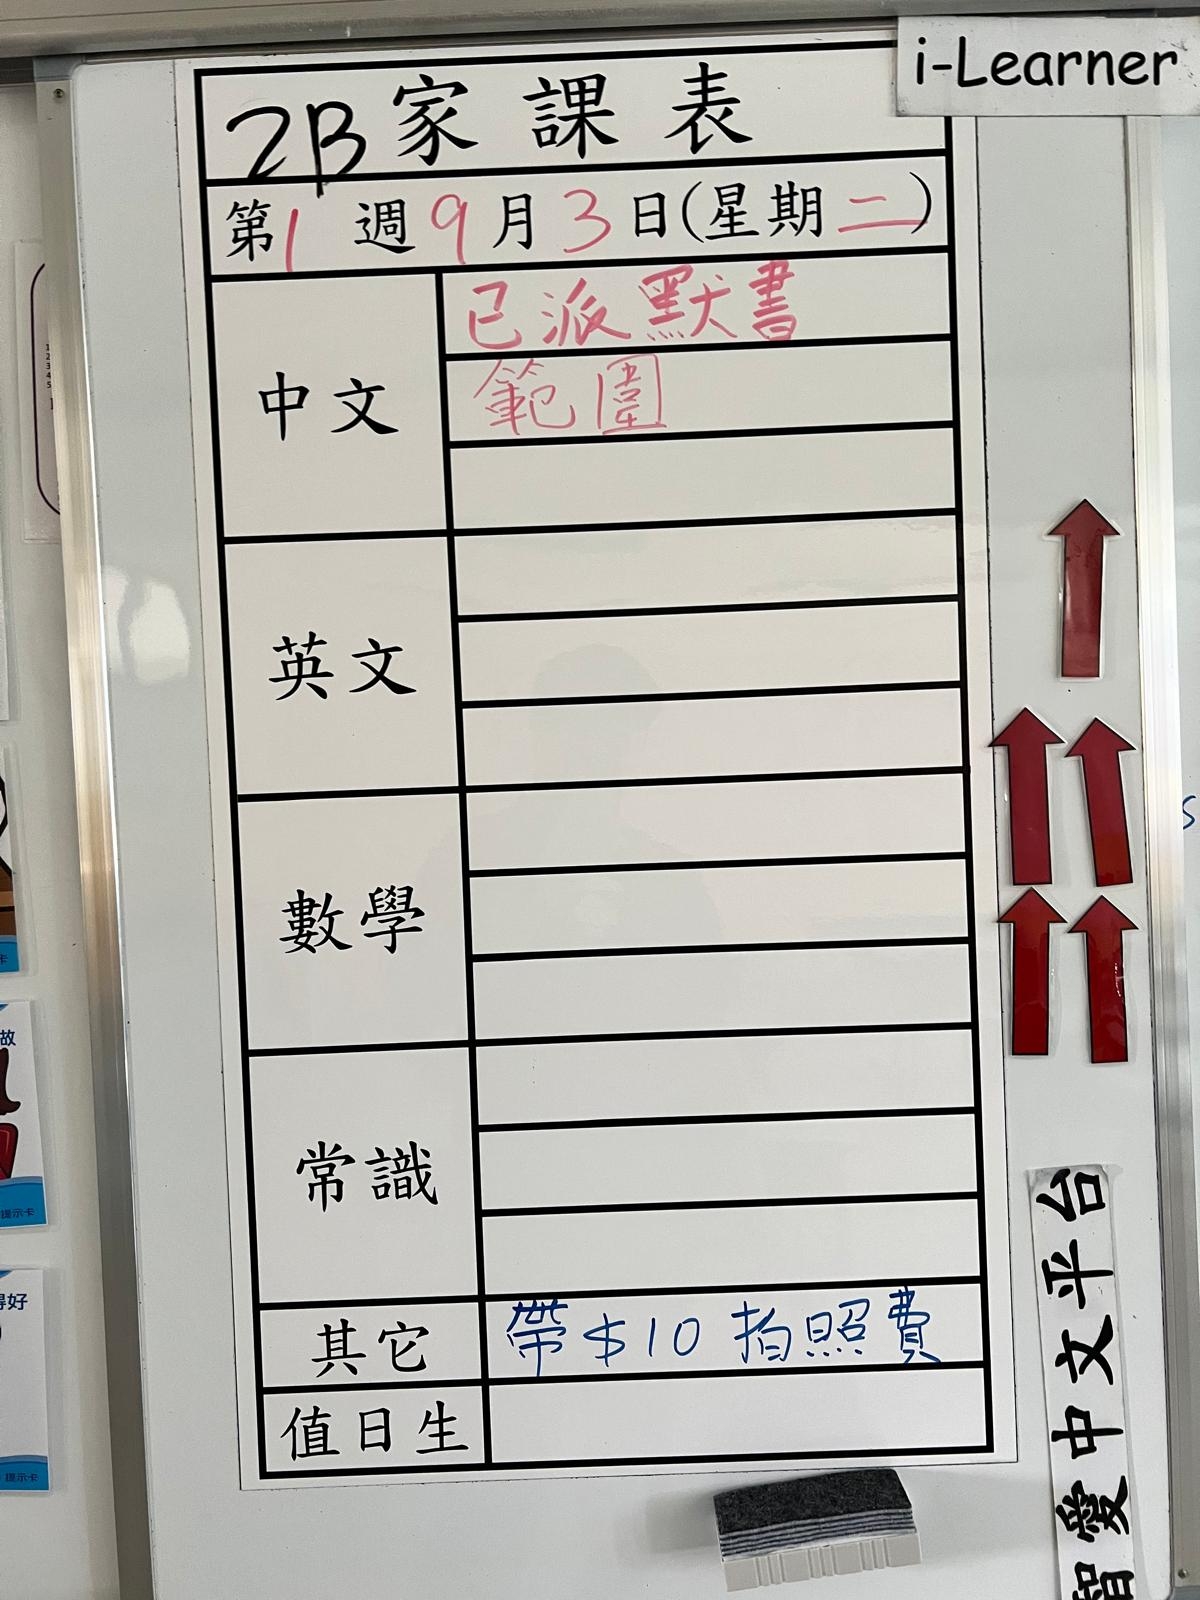 i-Learner
2B家課表
第1週9月3日(星期二)
中文
已派默書
範圍
英文
數學
常識
其它
帶$10拍照費
值日生
智愛中文平台
故
提示卡
得好
提示卡